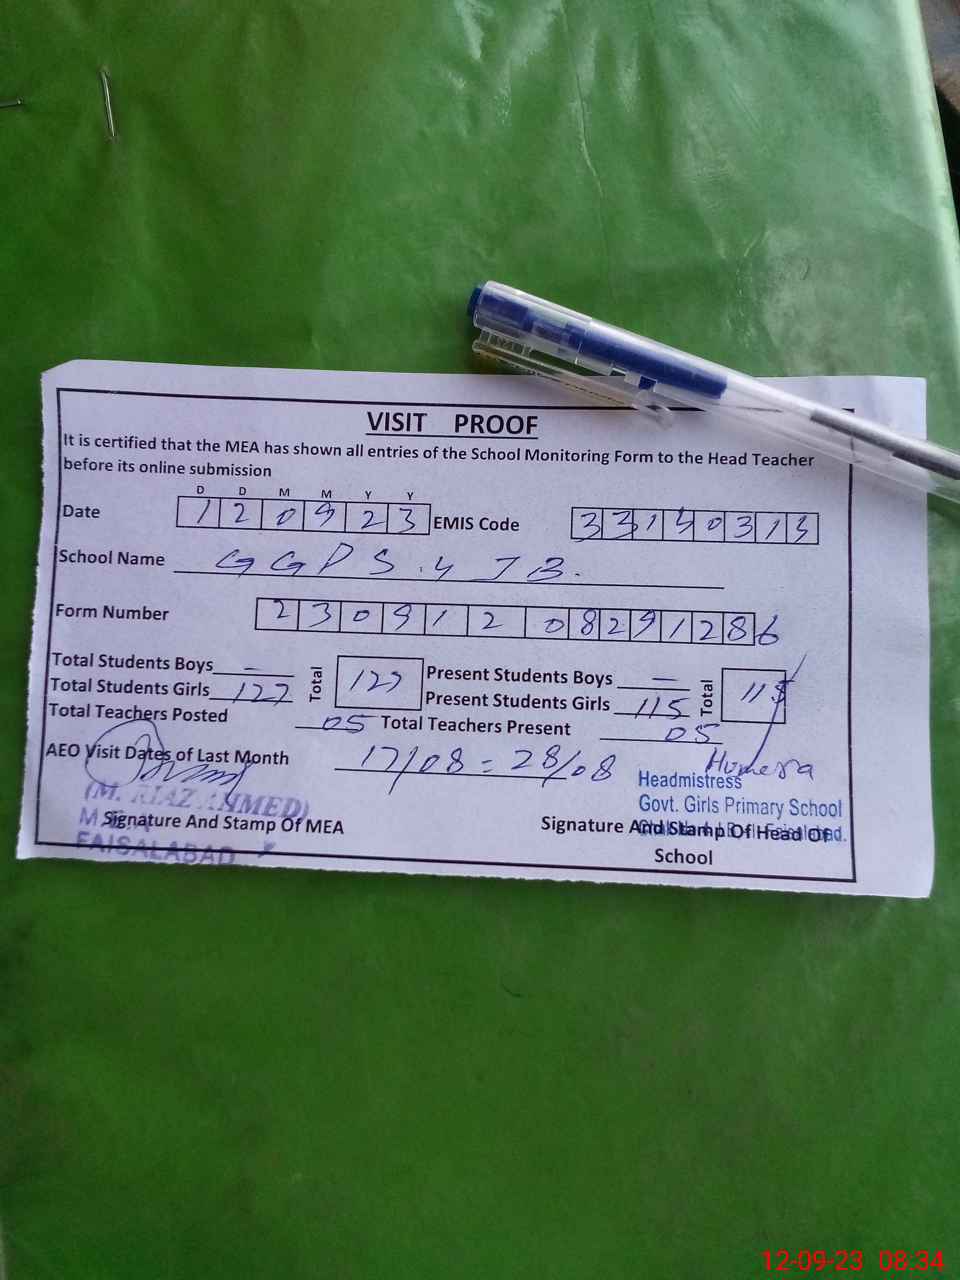 VISIT PROOF
It is certified that the MEA has shown all entries of the School Monitoring Form to the Head Teacher
before its online submission
D D M M Y Y
Date 120923 EMIS Code 33130313
School Name GGPS. 4 JB.
Form Number 23091208291286
Total Students Boys — Total 127 Present Students Boys — Total 115
Total Students Girls 127 Present Students Girls 115
Total Teachers Posted 05 Total Teachers Present 05
AEO Visit Dates of Last Month 17/08 = 28/08 Humera
Headmistress
(M. RIAZ AHMED) Govt. Girls Primary School
Signature And Stamp Of MEA Signature And Stamp Of Head Of
FAISALABAD School
12-09-23 08:34